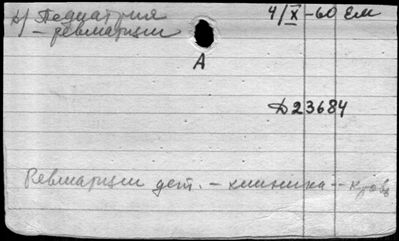 Д/ Педиатрия 4/X-60 ЕМ
– ревматизм
А
Д23684
Ревматизм дет. – клиника – кровь